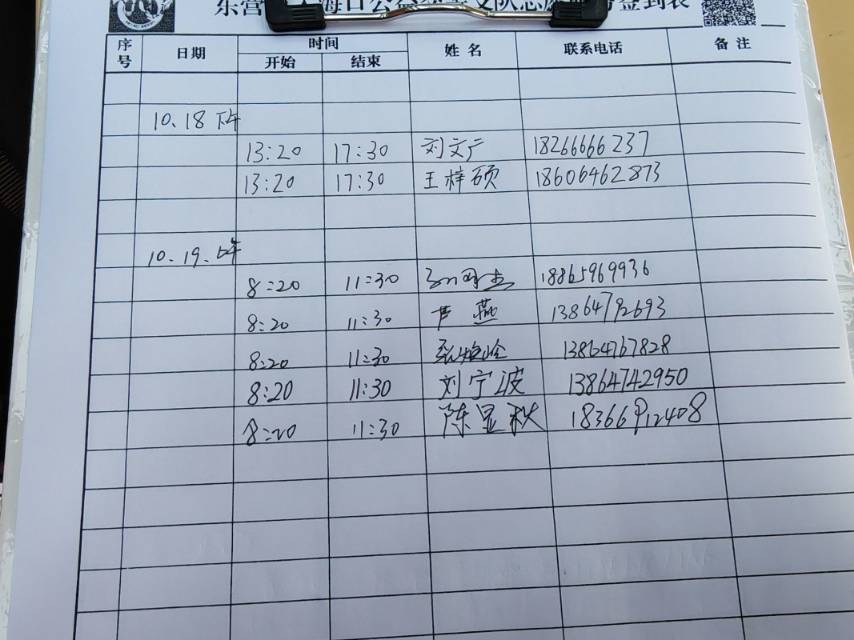 序号 日期 时间 姓名 联系电话 备注
开始 结束
10.18 下午
13:20 17:30 刘文广 18266666237
13:20 17:30 王梓硕 18606462873
10.19.上午
8:20 11:30 18865969936
8:20 11:30 芦燕 13864792693
8:20 11:30 13864767828
8:20 11:30 刘宁波 13864742950
8:20 11:30 陈显秋 18366912408